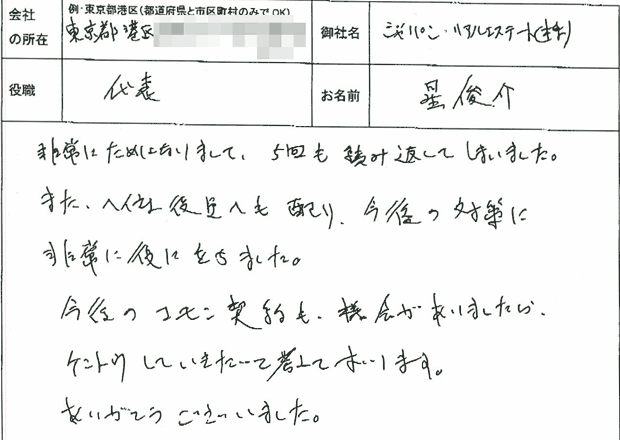 会社の所在
例・東京都港区(都道府県と市区町村のみでOK)
東京都港区
御社名
ジャパン・リアルエステート(株)
役職
代表
お名前
星俊介
非常にためになりまして、5回も読み返してしまいました。
また、役員へも配り、今後の対策に
非常に役に立ちました。
今後のコモン契約も、機会がありましたら、
ケントウしていきたいと考えてまいります。
ありがとうございました。